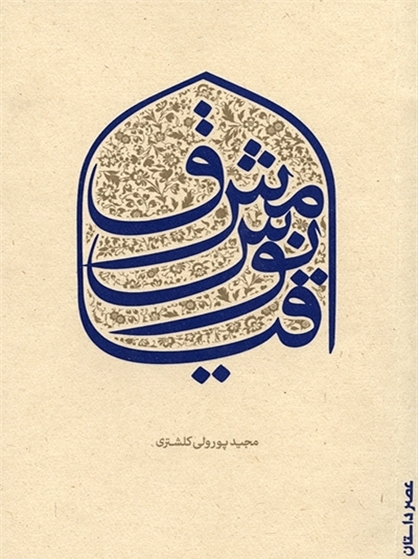 اقیانوس مشرق
مجید پورولی کلشتری
عصر داستان